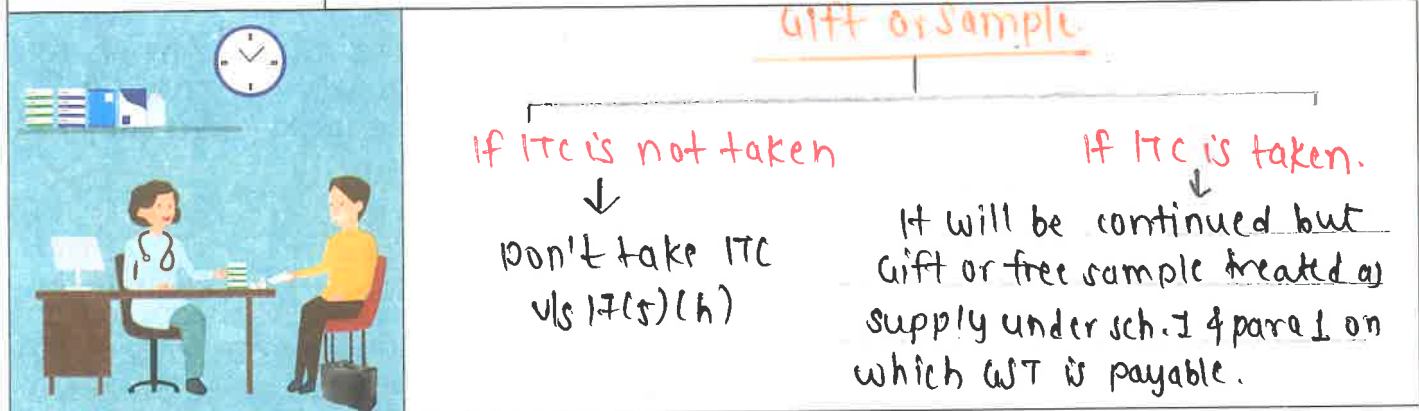 Gift or Sample.
If ITC is not taken
↓
Don't take ITC
u/s 17(5)(h)
If ITC is taken.
↓
It will be continued but
Gift or free sample treated as
supply under sch. I & para 1 on
which GST is payable.